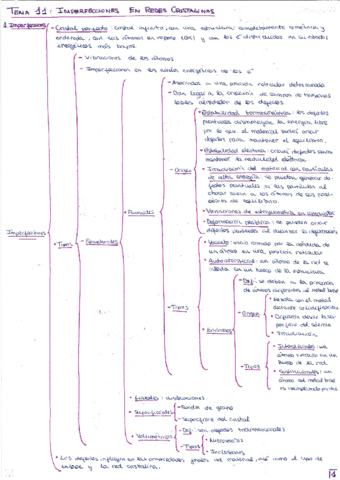 TEMA 11: IMPERFECCIONES EN REDES CRISTALINAS
1. Imperfecciones
• Cristal perfecto: cristal infinito, con una estructura completamente simétrica y
ordenada, con sus átomos en reposo (0K) y con los e⁻ distribuidos en su estado
energético más bajo.
- Vibraciones de los átomos
- Imperfecciones en los niveles energéticos de los e⁻
Imperfecciones
• Tipos
- Estructurales
• Puntuales
- Origen
• Asociados a una posición reticular determinada
• Dan lugar a la creación de campos de tensiones
locales alrededor de los defectos
• Estabilidad termodinámica: los defectos
puntuales disminuyen la energía libre
por lo que el material suele crear
defectos para mantener el equilibrio.
• Estabilidad eléctrica: crear defectos para
mantener la neutralidad eléctrica
• Irradiación del material con partículas
de alta energía: se pueden generar de-
fectos puntuales si las partículas al
chocar sacan a los átomos de sus posi-
ciones de equilibrio.
• Variaciones de estequiometría en compuestos
• Deformación plástica: se pueden crear
defectos puntuales al
- Tipos
• Vacante: vacío creado por la pérdida de
un átomo en una posición reticular
• Autointersticial: un átomo de la red se
inserta en un hueco de la estructura
• Extrínsecos
- Def: se deben a la presencia
de átomos diferentes al metal base
- Origen
• Aleado con el metal
durante la solidificación
• Difusión desde la su-
perficie del sólido
• Irradiación
- Tipos
• Intersticiales: un
átomo en un
hueco de la red.
• Sustitucionales: un
átomo del metal base
es reemplazado
• Lineales: dislocaciones
• Superficiales
- Borde de grano
- Superficie del cristal
• Volumétricos
- Def: son defectos tridimensionales
- Tipos
• Microporos
• Inclusiones
• Los defectos influyen en las propiedades del material, así como el tipo de
enlace y la red cristalina.
1